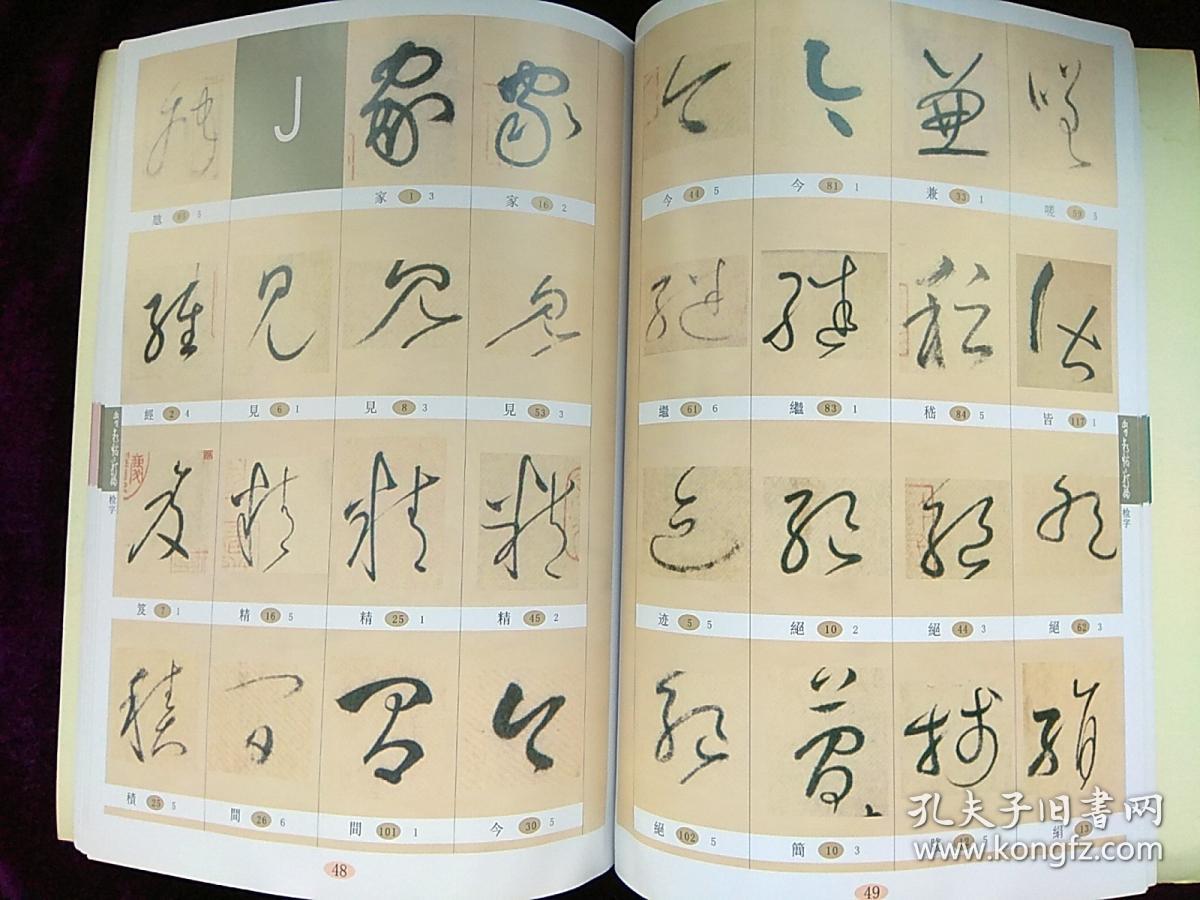 J
家 1 3
家 16 2
經 2 4
見 6 1
見 8 3
見 53 3
笈 7 1
精 16 5
精 25 1
精 45 2
積 25 5
間 26 6
間 101 1
今 30 5
檢字
48
今 44 5
今 81 1
兼 33 1
嗟 59 5
繼 61 6
繼 83 1
嵇 84 5
皆 117 1
迹 5 5
絕 10 2
絕 44 3
絕 62 3
絕 102 5
簡 10 3
絹 13
檢字
49
孔夫子旧書网
www.kongfz.com